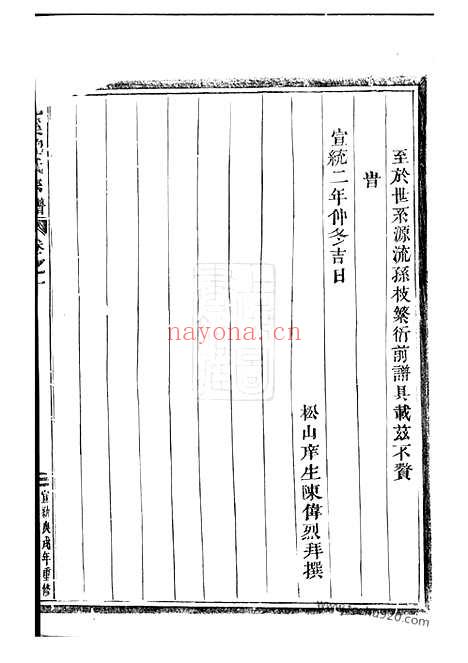 至於世系源流孫枝繁衍前譜具載茲不贅
旹
宣統二年仲冬吉日
松山庠生陳偉烈拜撰
氏宗譜 卷之一
宣統庚戌年重修
nayona.cn